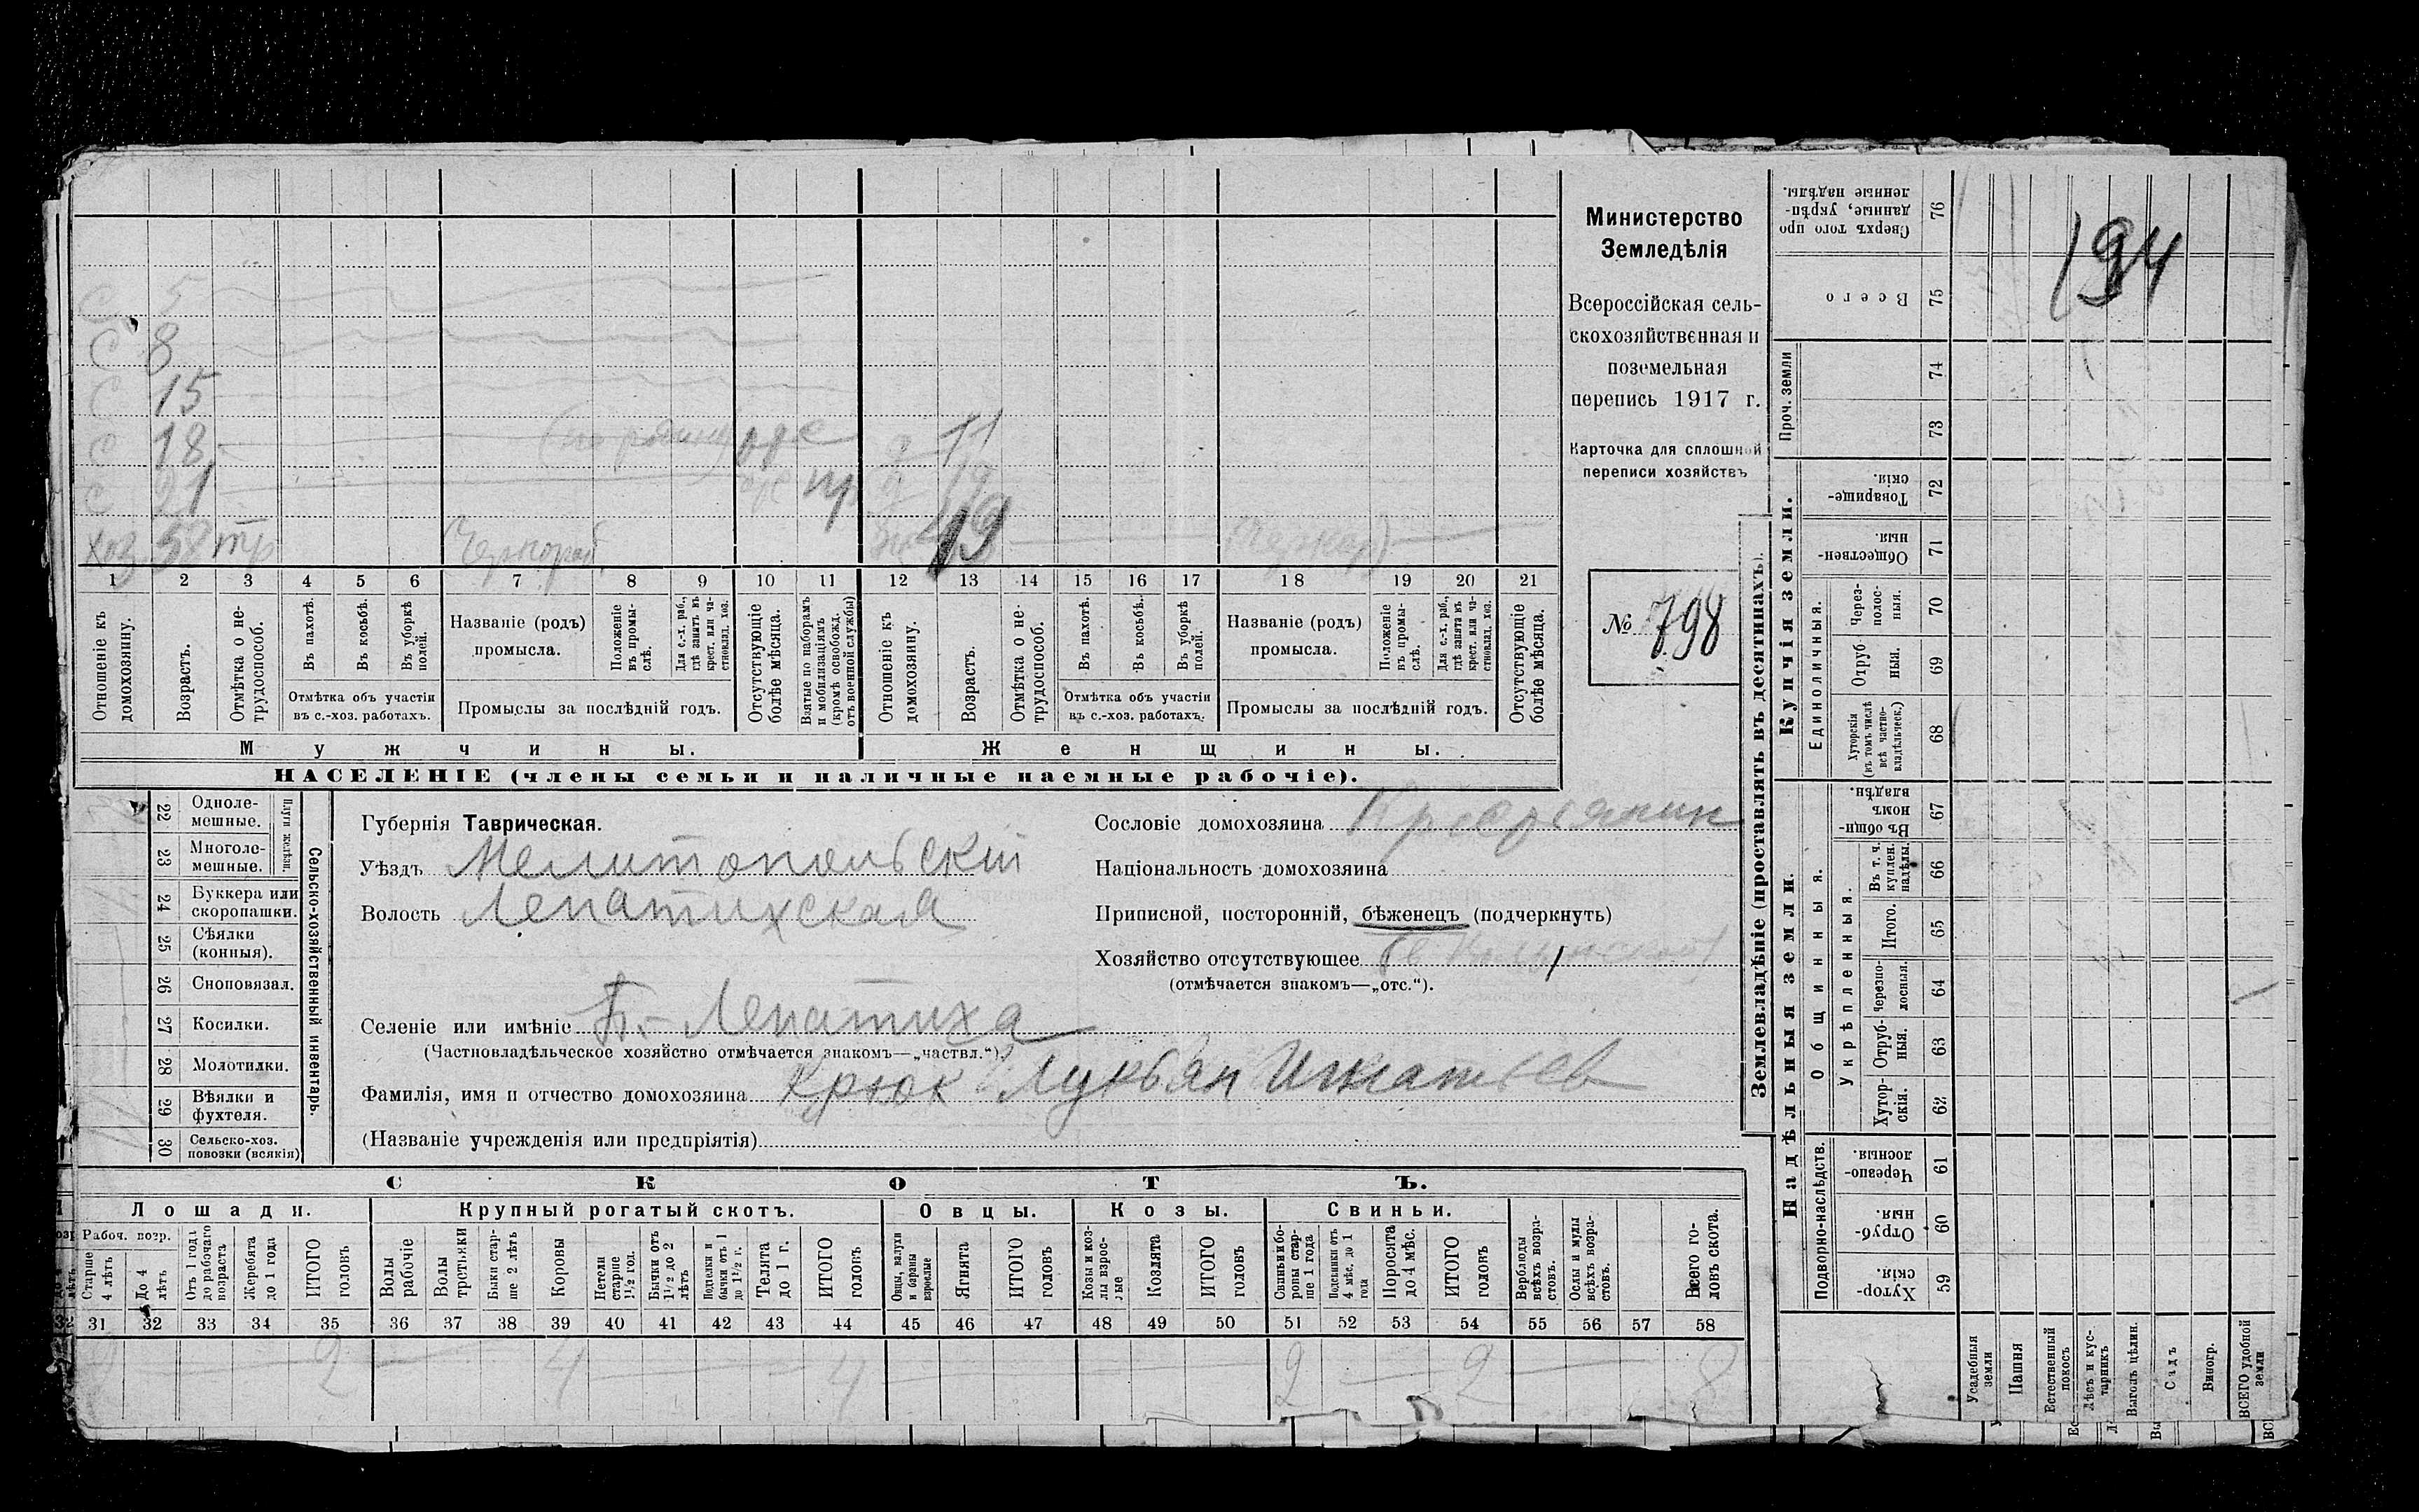 194
С 5
С 8
С 15
С 18
С 21
хоз 58 тр
д 11
д 19
19
1 2 3 4 5 6 7 8 9 10 11 12 13 14 15 16 17 18 19 20 21
Отношеніе къ домохозяину.
Возрастъ.
Отмѣтка о не-трудоспособ.
Въ пахотѣ.
Въ косьбѣ.
Въ уборкѣ полей.
Отмѣтка объ участіи
въ с.-хоз. работахъ.
Названіе (родъ)
промысла.
Положеніе въ промы-слѣ.
Для с.-х. раб., гдѣ занятъ въ крест. или ча-стновлад. хоз.
Промыслы за послѣдній годъ.
Отсутствующіе болѣе мѣсяца.
Взятые по наборамъ и мобилизаціямъ (кромѣ освобожд. отъ военной службы)
Отношеніе къ домохозяину.
Возрастъ.
Отмѣтка о не-трудоспособ.
Въ пахотѣ.
Въ косьбѣ.
Въ уборкѣ полей.
Отмѣтка объ участіи
въ с.-хоз. работахъ.
Названіе (родъ)
промысла.
Положеніе въ промы-слѣ.
Для с.-х. раб., гдѣ занята въ крест. или ча-стновлад. хоз.
Промыслы за послѣдній годъ.
Отсутствующіе болѣе мѣсяца.
Мужчины.
Женщины.
НАСЕЛЕНІЕ (члены семьи и наличные наемные рабочіе).
Министерство
Земледѣлія
Всероссійская сель-
скохозяйственная и
поземельная
перепись 1917 г.
Карточка для сплошной
переписи хозяйствъ
№ 798
22 Одноле-мешные.
23 Многоле-мешные.
Плуги желѣзн.
24 Буккера или скоропашки.
25 Сѣялки (конныя).
26 Сноповязал.
27 Косилки.
28 Молотилки.
29 Вѣялки и фухтеля.
30 Сельско-хоз. повозки (всякія)
Сельско-хозяйственный инвентарь.
Губернія Таврическая.
Уѣздъ Мелитопольскій
Волость Лепатихская
Селеніе или имѣніе Б.- Лепатиха
(Частновладѣльческое хозяйство отмѣчается знакомъ—„частвл.“).
Фамилія, имя и отчество домохозяина Крюк Лукьян Игнатьев
(Названіе учрежденія или предпріятія)
Сословіе домохозяина Крестьянин
Національность домохозяина
Приписной, посторонній, бѣженецъ (подчеркнуть)
Хозяйство отсутствующее
(отмѣчается знакомъ—„отс.“).
СКОТЪ.
Лошади.
Крупный рогатый скотъ.
Овцы.
Козы.
Свиньи.
Рабоч. возр.
Старше 4 лѣтъ
До 4 лѣтъ
Отъ 1 года до рабочаго возраста
Жеребята до 1 года
ИТОГО головъ
Волы рабочіе
Волы третьяки
Быки стар-ше 2 лѣтъ
Коровы
Нетели старше 1½ год.
Бычки отъ 1½ до 2 лѣтъ
Подтелки и бычки отъ 1 до 1½ г.
Телята до 1 г.
ИТОГО головъ
Овцы, валухи и бараны взрослые
Ягнята
ИТОГО головъ
Козы и коз-лы взрос-лые
Козлята
ИТОГО головъ
Свиньи и бо-ровы стар-ше 1 года
Подсвинки отъ 4 мѣс. до 1 года
Поросята до 4 мѣс.
ИТОГО головъ
Верблюды всѣхъ возра-стовъ.
Ослы и мулы всѣхъ возра-стовъ.
Всего го-ловъ скота.
31 32 33 34 35 36 37 38 39 40 41 42 43 44 45 46 47 48 49 50 51 52 53 54 55 56 57 58
2 4 4 2 2 8
Землевладѣніе (проставлять въ десятинахъ).
Надѣльныя земли.
Купчія земли.
Проч. земли
Подворно-наслѣдств.
Общинныя.
Укрѣпленныя.
Единоличныя.
76 Сверхъ того про-данные, укрѣп-ленные надѣлы.
75 Всего
74
73
72 Товарище-скія.
71 Обществен-ныя.
70 Через-полос-ныя.
69 Отруб-ныя.
68 Хуторскія (въ томъ числѣ всѣ частно-владѣльческ.)
67 Въ общи-номъ владѣн.
66 Въ т. ч. куплен. надѣлы.
65 Итого.
64 Черезпо-лосныя.
63 Отруб-ныя.
62 Хутор-скія.
61 Черезпо-лосныя.
60 Отруб-ныя.
59 Хутор-скія
Усадебныя земли
Пашня
Естественный покосъ
Лѣсъ и кус-тарникъ
Выгонъ цѣлин.
Садъ
Виногр.
ВСЕГО удобной земли